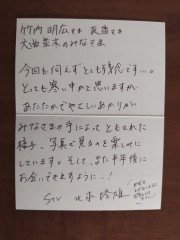 竹内 明広さま 友香さま
大曲並木のみなさま
今回も伺えずとても残念です…。
とっても寒い中かと思いますが
あたたかでやさしいあかりが
みなさまの手によって ともされた
様子、写真で見るのを 楽しみに
しています。そして、また半年後に
お会いできますように…！